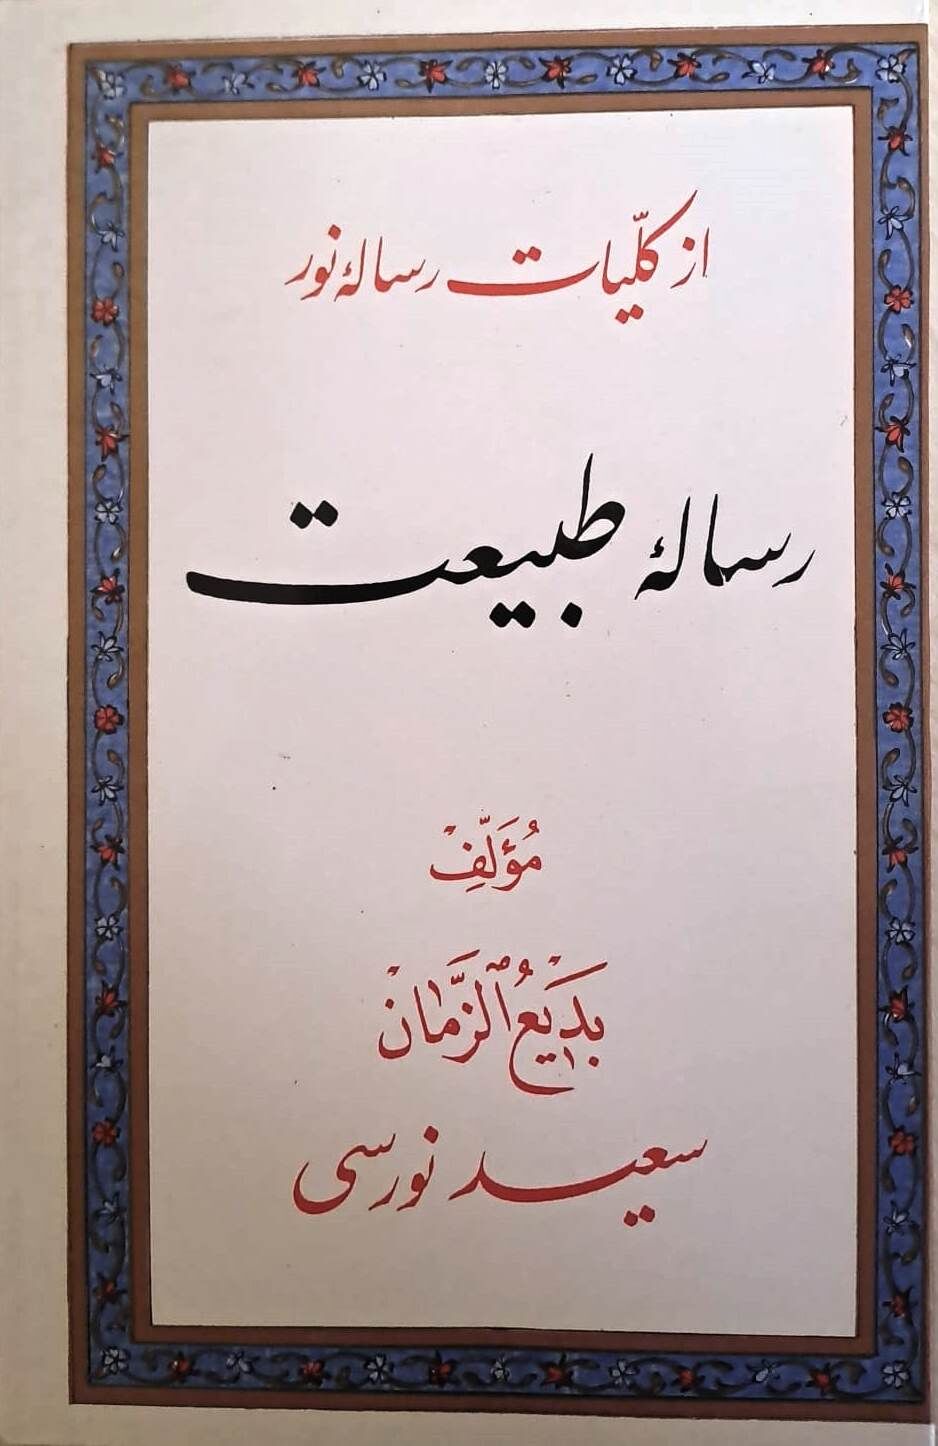 از کلّیات رسالهٔ نور
رسالهٔ طبیعت
مُؤَلِّفْ
بَدْیعُ ٱلزَّمٰانْ
سعید نورسی